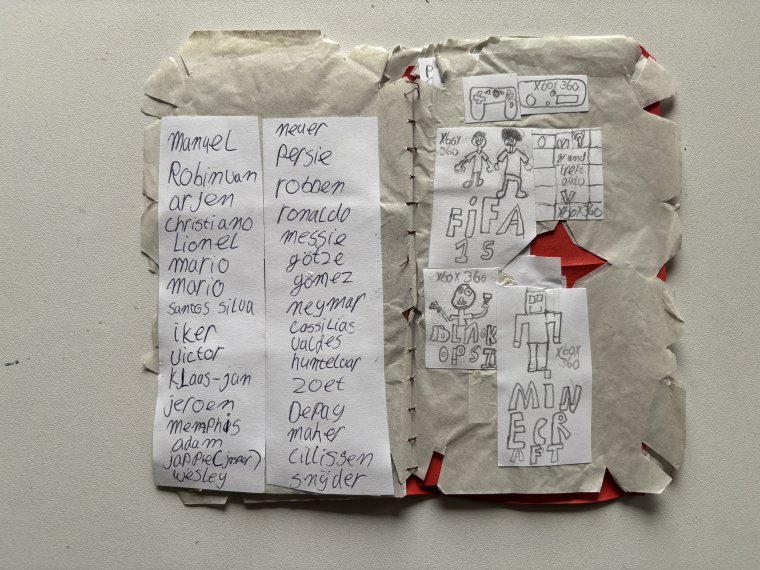 manuel
Robinvan
arjen
christiano
Lionel
mario
mario
santos silva
iker
victor
Klaas-jan
jeroen
memphis
adam
jappie(jasper)
wesley
neuer
persie
robben
ronaldo
messie
götze
gömez
neymar
cassilias
valdes
huntelaar
zoet
Depay
maher
cillissen
snyder
P
XBOX 360
XBOX
360
FiFA
15
grand
teft
auto
V
XBOX360
XBOX 360
BLACK
OPS II
XBOX
360
MIN
ECR
AFT